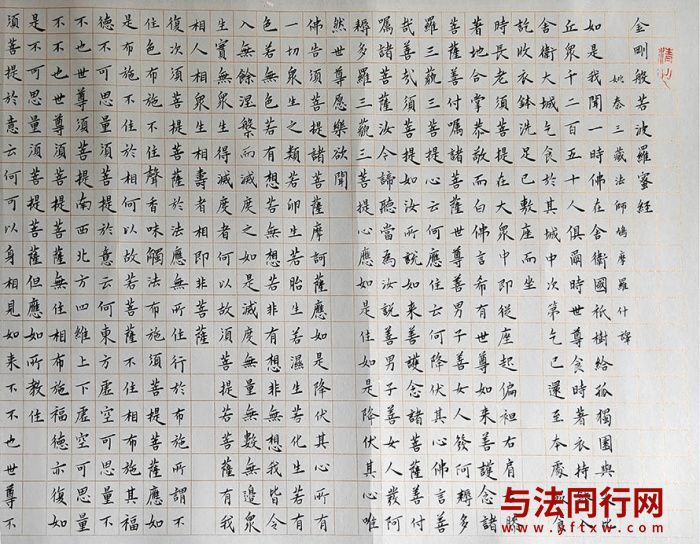 金剛般若波羅蜜經
姚秦三藏法師鳩摩羅什譯
如是我聞一時佛在舍衛國祇樹給孤獨園與比
丘眾千二百五十人俱爾時世尊食時著衣持
舍衛大城乞食於其城中次第乞已還至本處食
訖收衣鉢洗足已敷座而坐
時長老須菩提在大眾中即從座起偏袒右肩膝
著地合掌恭敬而白佛言希有世尊如來善護念諸
菩薩善付囑諸菩薩世尊善男子善女人發阿耨多
羅三藐三菩提心應云何住云何降伏其心佛言善
哉善哉須菩提如汝所說如來善護念諸菩薩善付
囑諸菩薩汝今諦聽當為汝說善男子善女人發阿
耨多羅三藐三菩提心應如是住如是降伏其心唯
然世尊願樂欲聞
佛告須菩提諸菩薩摩訶薩應如是降伏其心所有
一切眾生之類若卵生若胎生若濕生若化生若有
色若無色若有想若無想若非有想非無想我皆令
入無餘涅槃而滅度之如是滅度無量無數無邊眾
生實無眾生得滅度者何以故須菩提若菩薩有我
相人相眾生相壽者相即非菩薩
復次須菩提菩薩於法應無所住行於布施所謂不
住色布施不住聲香味觸法布施須菩提菩薩應如
是布施不住於相何以故若菩薩不住相布施其福
德不可思量須菩提於意云何東方虛空可思量不
不也世尊須菩提南西北方四維上下虛空可思量
不不也世尊須菩提菩薩無住相布施福德亦復如
是不可思量須菩提菩薩但應如所教住
須菩提於意云何可以身相見如來不不也世尊不
与法同行网
www.yftxw.com